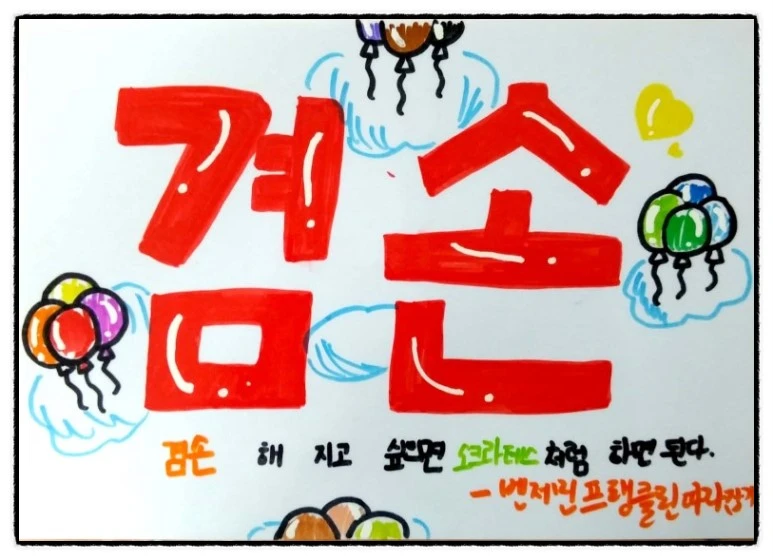 겸손
겸손 해 지고 싶다면 소크라테스 처럼 하면 된다.
- 벤제민 프랭클린 따라잡기